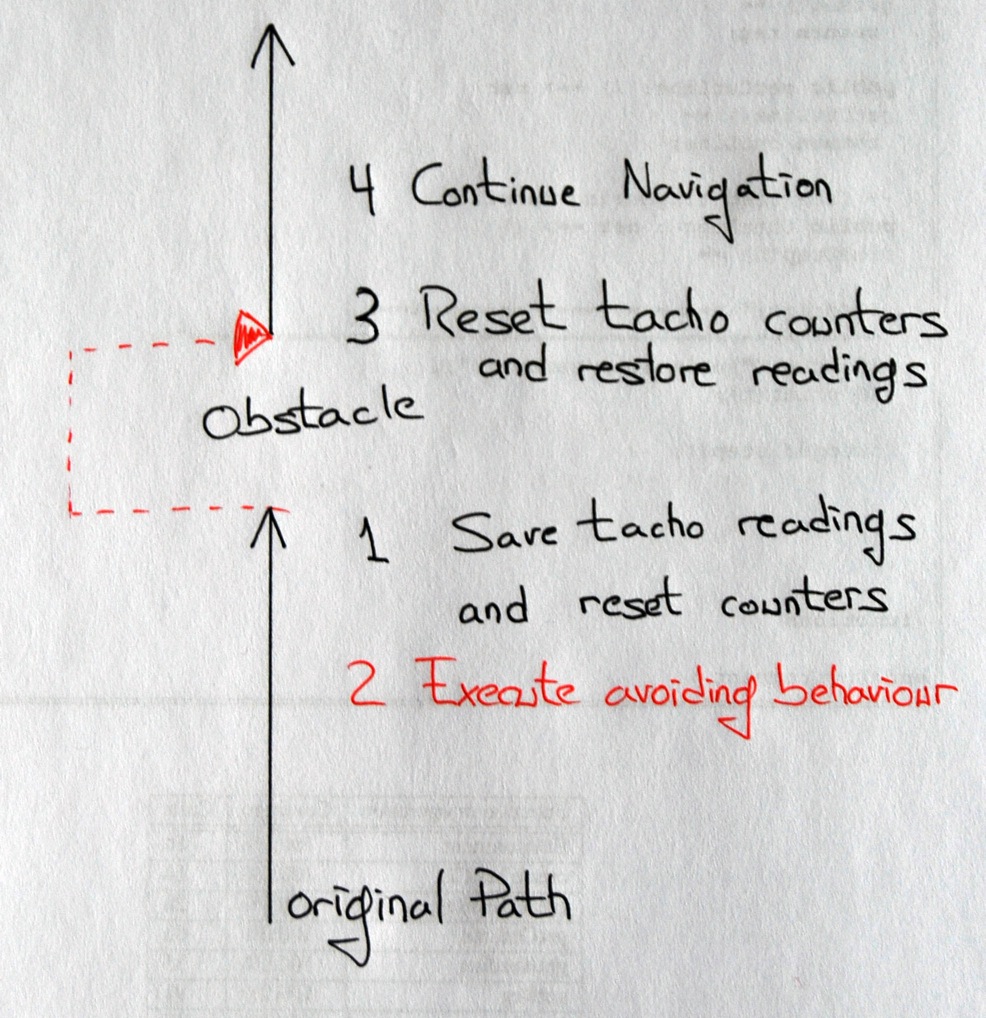 4 Continue Navigation
3 Reset tacho counters
and restore readings
Obstacle
1 Save tacho readings
and reset counters
2 Execute avoiding behaviour
original Path